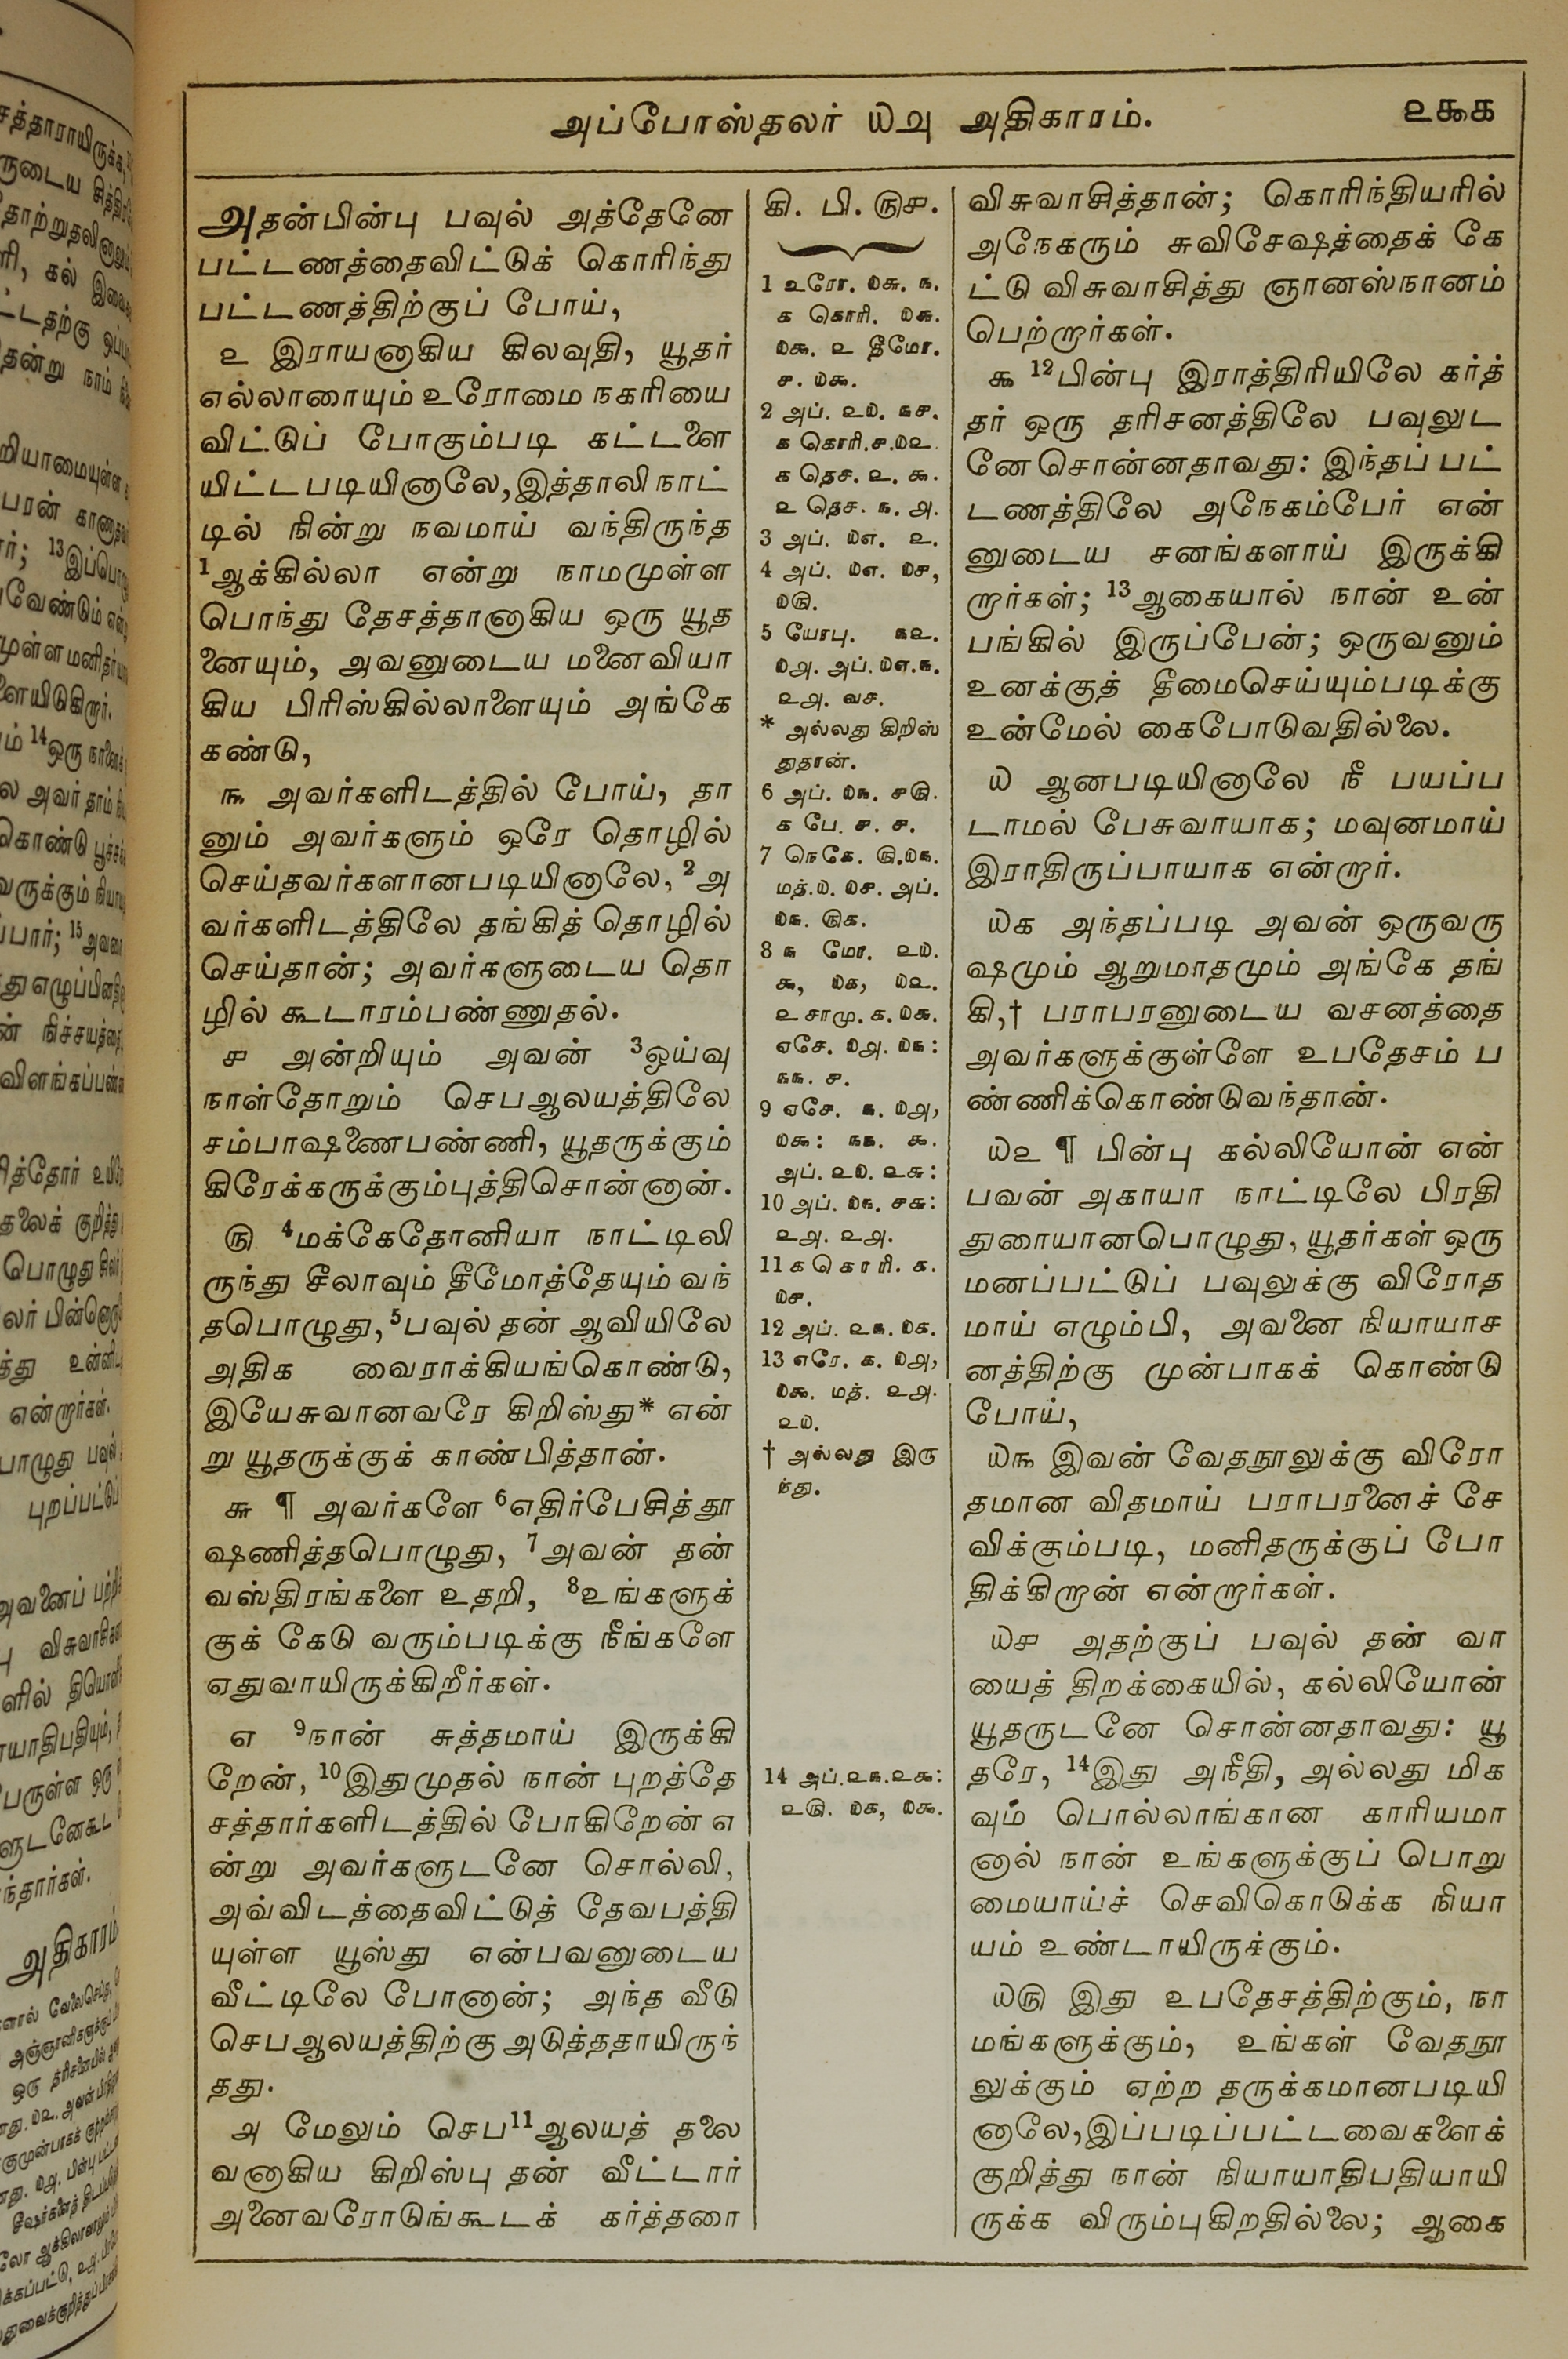 அப்போஸ்தலர் ௰௮ அதிகாரம்.
௨௯௧
அதன்பின்பு பவுல் அத்தேனே
பட்டணத்தைவிட்டுக் கொரிந்து
பட்டணத்திற்குப் போய்,
௨ இராயனாகிய கிலவுதி, யூதர்
எல்லாரையும் உரோமை நகரியை
விட்டுப் போகும்படி கட்டளை
யிட்டபடியினாலே, இத்தாலி நாட்
டில் நின்று நவமாய் வந்திருந்த
1ஆக்கில்லா என்று நாமமுள்ள
பொந்து தேசத்தானாகிய ஒரு யூத
னையும், அவனுடைய மனைவியா
கிய பிரிஸ்கில்லாளையும் அங்கே
கண்டு,
௩ அவர்களிடத்தில் போய், தா
னும் அவர்களும் ஒரே தொழில்
செய்தவர்களானபடியினாலே, 2அ
வர்களிடத்திலே தங்கித் தொழில்
செய்தான்; அவர்களுடைய தொ
ழில் கூடாரம்பண்ணுதல்.
௪ அன்றியும் அவன் 3ஓய்வு
நாள்தோறும் செபஆலயத்திலே
சம்பாஷணைபண்ணி, யூதருக்கும்
கிரேக்கருக்கும்புத்திசொன்னான்.
௫ 4மக்கேதோனியா நாட்டிலி
ருந்து சீலாவும் தீமோத்தேயும் வந்
தபொழுது, 5பவுல் தன் ஆவியிலே
அதிக வைராக்கியங்கொண்டு,
இயேசுவானவரே கிறிஸ்து* என்
று யூதருக்குக் காண்பித்தான்.
௬ ¶ அவர்களே 6எதிர்பேசித்தூ
ஷணித்தபொழுது, 7அவன் தன்
வஸ்திரங்களை உதறி, 8உங்களுக்
குக் கேடு வரும்படிக்கு நீங்களே
ஏதுவாயிருக்கிறீர்கள்.
௭ 9நான் சுத்தமாய் இருக்கி
றேன், 10இதுமுதல் நான் புறத்தே
சத்தார்களிடத்தில் போகிறேன் எ
ன்று அவர்களுடனே சொல்லி,
அவ்விடத்தைவிட்டுத் தேவபத்தி
யுள்ள யூஸ்து என்பவனுடைய
வீட்டிலே போனான்; அந்த வீடு
செபஆலயத்திற்கு அடுத்ததாயிருந்
தது.
௮ மேலும் செப11ஆலயத் தலை
வனாகிய கிறிஸ்பு தன் வீட்டார்
அனைவரோடுங்கூடக் கர்த்தரை
கி. பி. ௫௪.
1 உரோ. ௰௬. ௩.
௧ கொரி. ௰௬.
௰௯. ௨ தீமோ.
௪. ௰௯.
2 அப். ௨௰. ௩௪.
௧ கொரி.௪.௰௨.
௧ தெச. ௨. ௯.
௨ தெச. ௩. ௮.
3 அப். ௰௭. ௨.
4 அப். ௰௭. ௰௪,
௰௫.
5 யோபு. ௩௨.
௰௮. அப். ௰௭.௩.
௨௮. வச.
* அல்லது கிறிஸ்
துதான்.
6 அப். ௰௩. ௪௫.
௧ பே. ௪. ௪.
7 நெகே. ௫.௰௩.
மத்.௰. ௰௪. அப்.
௰௩. ௫௧.
8 ௩ மோ. ௨௰.
௯, ௰௧, ௰௨.
௨ சாமு. ௧. ௰௬.
ஏசே. ௰௮. ௰௩:
௩௩. ௪.
9 ஏசே. ௩. ௰௮,
௰௯: ௩௩. ௯.
அப். ௨௰. ௨௬:
10 அப். ௰௩. ௪௬:
௨௮. ௨௮.
11 ௧ கொரி. ௧.
௰௪.
12 அப். ௨௩. ௰௧.
13 எரே. ௧. ௰௮,
௰௯. மத். ௨௮.
௨௰.
† அல்லது இரு
ந்து.
14 அப்.௨௩.௨௯:
௨௫. ௰௧, ௰௯.
விசுவாசித்தான்; கொரிந்தியரில்
அநேகரும் சுவிசேஷத்தைக் கே
ட்டு விசுவாசித்து ஞானஸ்நானம்
பெற்றார்கள்.
௯ 12பின்பு இராத்திரியிலே கர்த்
தர் ஒரு தரிசனத்திலே பவுலுட
னே சொன்னதாவது: இந்தப் பட்
டணத்திலே அநேகம்பேர் என்
னுடைய சனங்களாய் இருக்கி
றார்கள்; 13ஆகையால் நான் உன்
பங்கில் இருப்பேன்; ஒருவனும்
உனக்குத் தீமைசெய்யும்படிக்கு
உன்மேல் கைபோடுவதில்லை.
௰ ஆனபடியினாலே நீ பயப்ப
டாமல் பேசுவாயாக; மவுனமாய்
இராதிருப்பாயாக என்றார்.
௰௧ அந்தப்படி அவன் ஒருவரு
ஷமும் ஆறுமாதமும் அங்கே தங்
கி,† பராபரனுடைய வசனத்தை
அவர்களுக்குள்ளே உபதேசம் ப
ண்ணிக்கொண்டுவந்தான்.
௰௨ ¶ பின்பு கல்லியோன் என்
பவன் அகாயா நாட்டிலே பிரதி
துரையானபொழுது, யூதர்கள் ஒரு
மனப்பட்டுப் பவுலுக்கு விரோத
மாய் எழும்பி, அவனை நியாயாச
னத்திற்கு முன்பாகக் கொண்டு
போய்,
௰௩ இவன் வேதநூலுக்கு விரோ
தமான விதமாய் பராபரனைச் சே
விக்கும்படி, மனிதருக்குப் போ
திக்கிறான் என்றார்கள்.
௰௪ அதற்குப் பவுல் தன் வா
யைத் திறக்கையில், கல்லியோன்
யூதருடனே சொன்னதாவது: யூ
தரே, 14இது அநீதி, அல்லது மிக
வும் பொல்லாங்கான காரியமா
னால் நான் உங்களுக்குப் பொறு
மையாய்ச் செவிகொடுக்க நியா
யம் உண்டாயிருக்கும்.
௰௫ இது உபதேசத்திற்கும், நா
மங்களுக்கும், உங்கள் வேதநூ
லுக்கும் ஏற்ற தருக்கமானபடியி
னாலே,இப்படிப்பட்டவைகளைக்
குறித்து நான் நியாயாதிபதியாயி
ருக்க விரும்புகிறதில்லை; ஆகை